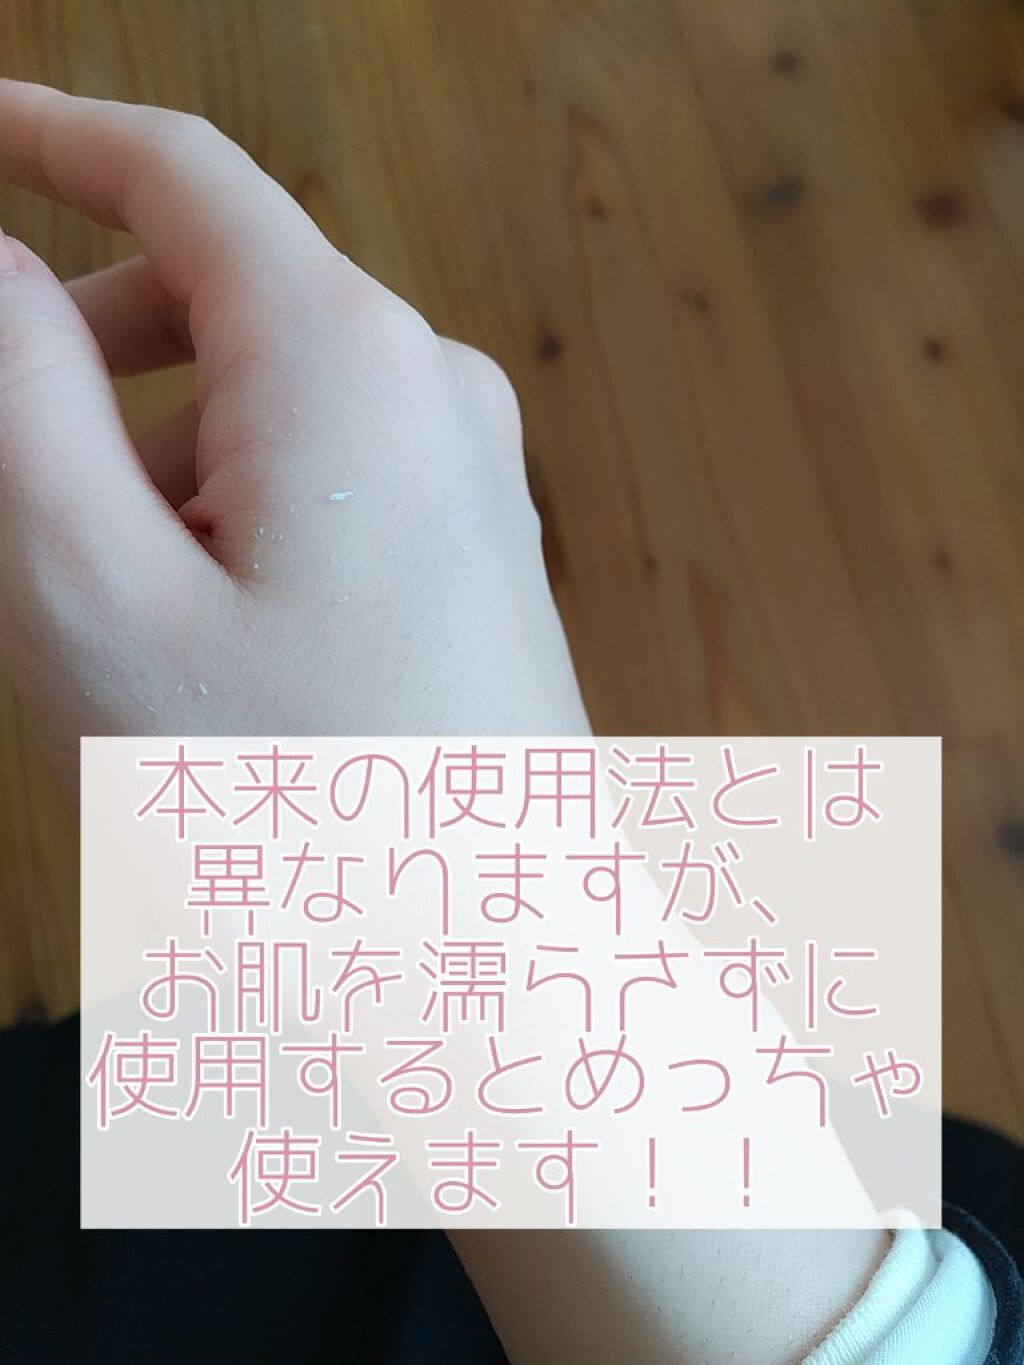 本来の使用法とは
異なりますが、
お肌を濡らさずに
使用するとめっちゃ
使えます！！